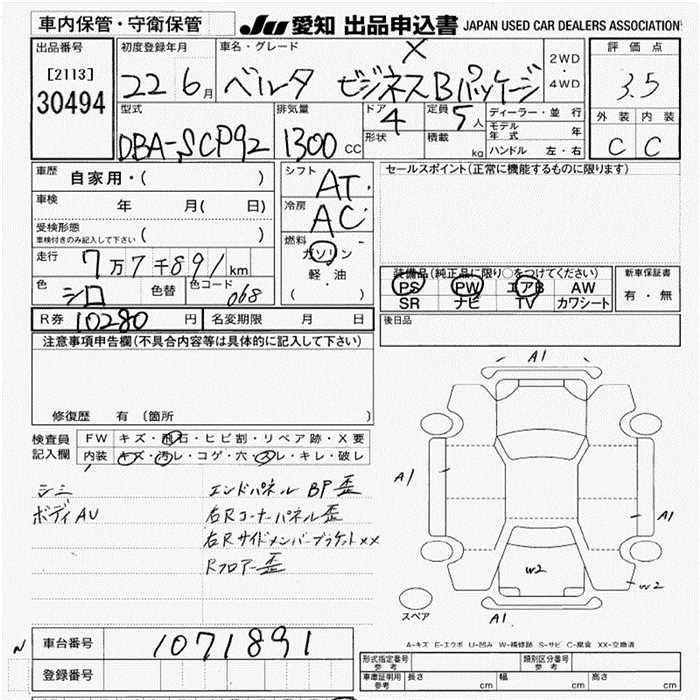 車内保管・守衛保管 JU 愛知 出品申込書 JAPAN USED CAR DEALERS ASSOCIATION
出品番号 初度登録年月 車名・グレード 2WD・4WD 評価点
[2113] 30494 22 6月 ベルタ ビジネスBパッケージ × 3.5
型式 排気量 ドア 4 定員 5人 ディーラー・並行 外装 内装
DBA-SCP92 1300 CC 形状 積載 kg モデル年式 年 C C
ハンドル 左・右
車歴 自家用・( ) シフト AT セールスポイント(正常に機能するものに限ります)
車検 年 月( 日) 冷房 AC
受検形態 ( )
車検付きのみ記入して下さい
燃料 ガソリン
走行 7万7千891km 軽・油 装備品(純正品に限り○をつけてください) 新車保証書
( ・ ) PS PW エアB AW 有・無
色 シロ 色替 色コード 068 SR ナビ TV カワシート
R券 10280円 名変期限 月 日 後日品
注意事項申告欄(不具合内容等は具体的に記入して下さい)
修復歴 有 〔箇所
検査員記入欄 FW キズ・飛石・ヒビ割・リペア跡・X要
内装 キズ・汚レ・コゲ・穴・スレ・キレ・破レ
シミ エンドパネル BP歪
ボディAU 右Rコーナーパネル歪
右Rサイドメンバーブラケットxx
Rフロアー歪
A1
A1
A1
W2
W2
A1
スペア
A-キズ E-エクボ U-凹み W-補修跡 S-サビ C-腐食 XX-交換済
N 車台番号 1071891
登録番号
形式指定番号 参考 類別区分番号 参考
車庫証明用 参考 長さ cm 幅 cm 高さ cm